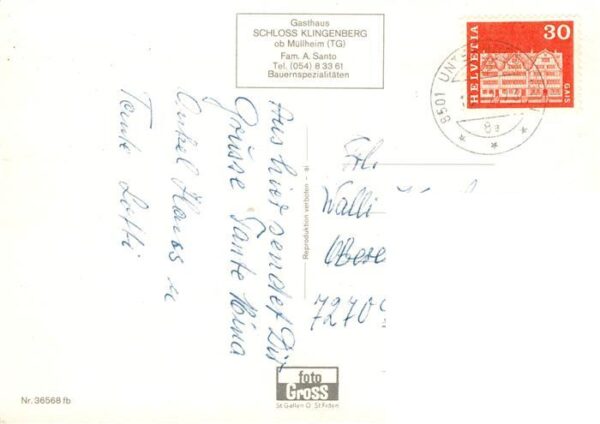 Gasthaus
SCHLOSS KLINGENBERG
ob Müllheim (TG)
Fam. A. Santo
Tel. (054) 8 33 61
Bauernspezialitäten
HELVETIA
30
GAIS
8501 UNT
8a
Aus hier sendet Dir
Grüsse Tante Mina
Onkel Hans u
Tante Lotti
Reproduktion verboten
Frl.
Walli
Obere
7270
foto
Gross
St Gallen O St Fiden
Nr. 36568 fb